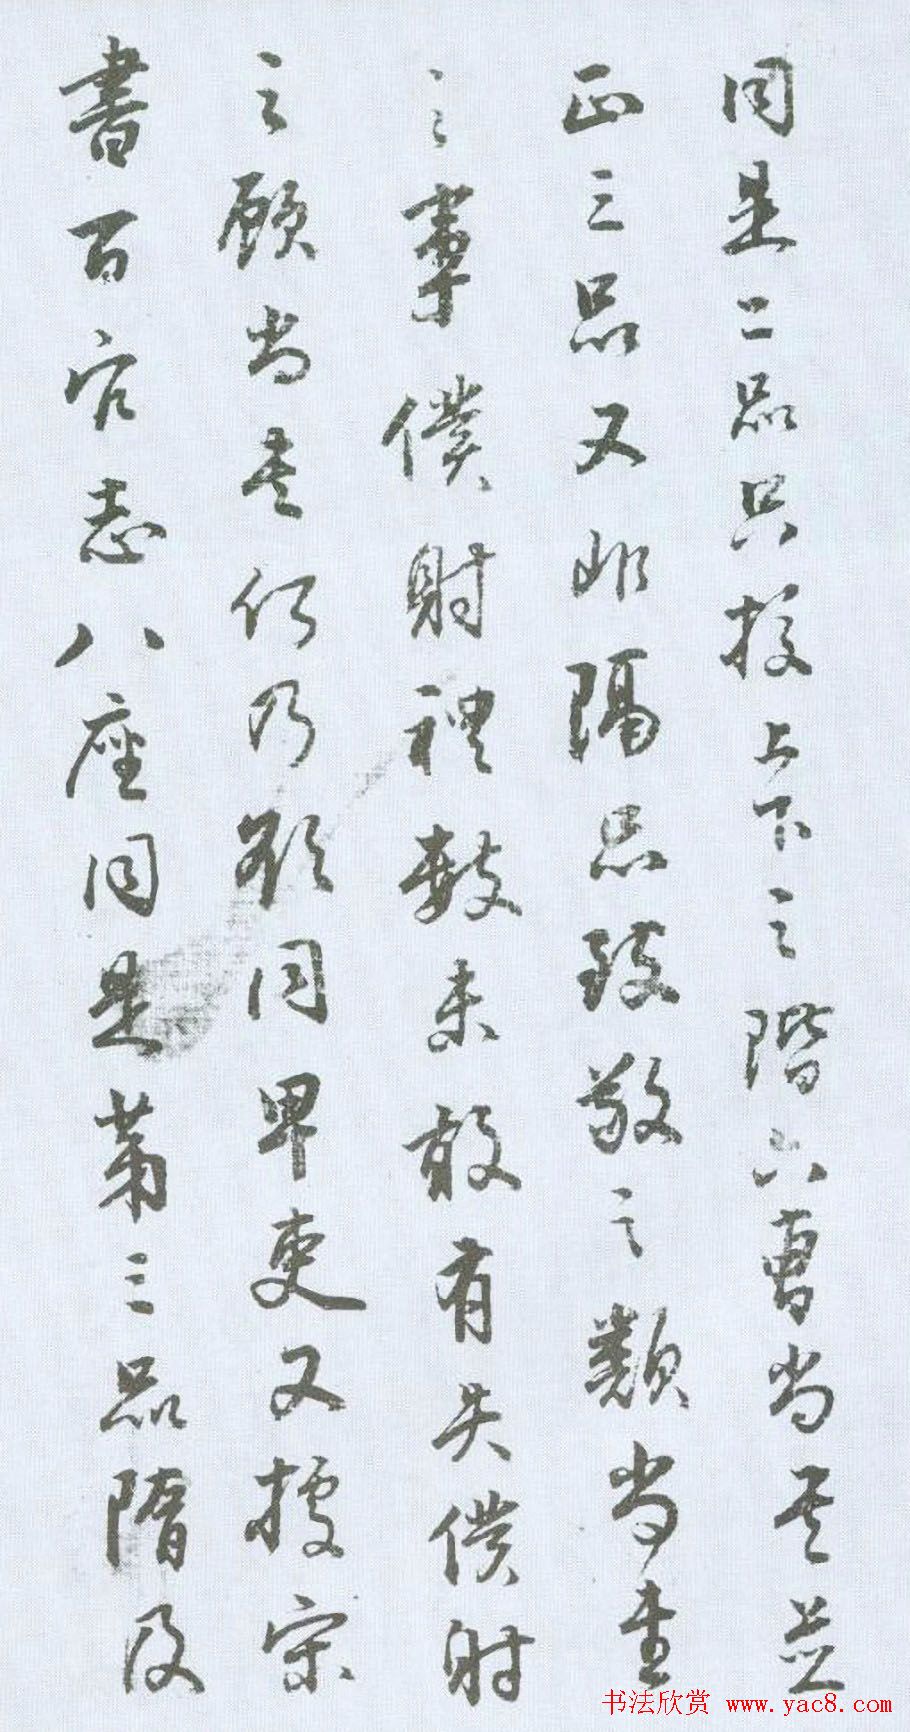 同是二品只校上下之階六曹尚書並
正三品又非隔品致敬之類尚書
之事僕射禮數未敢有失僕射
之顧尚書何乃欲同卑吏又據宋
書百官志八座同是第三品隋及
书法欣赏 www.yac8.com